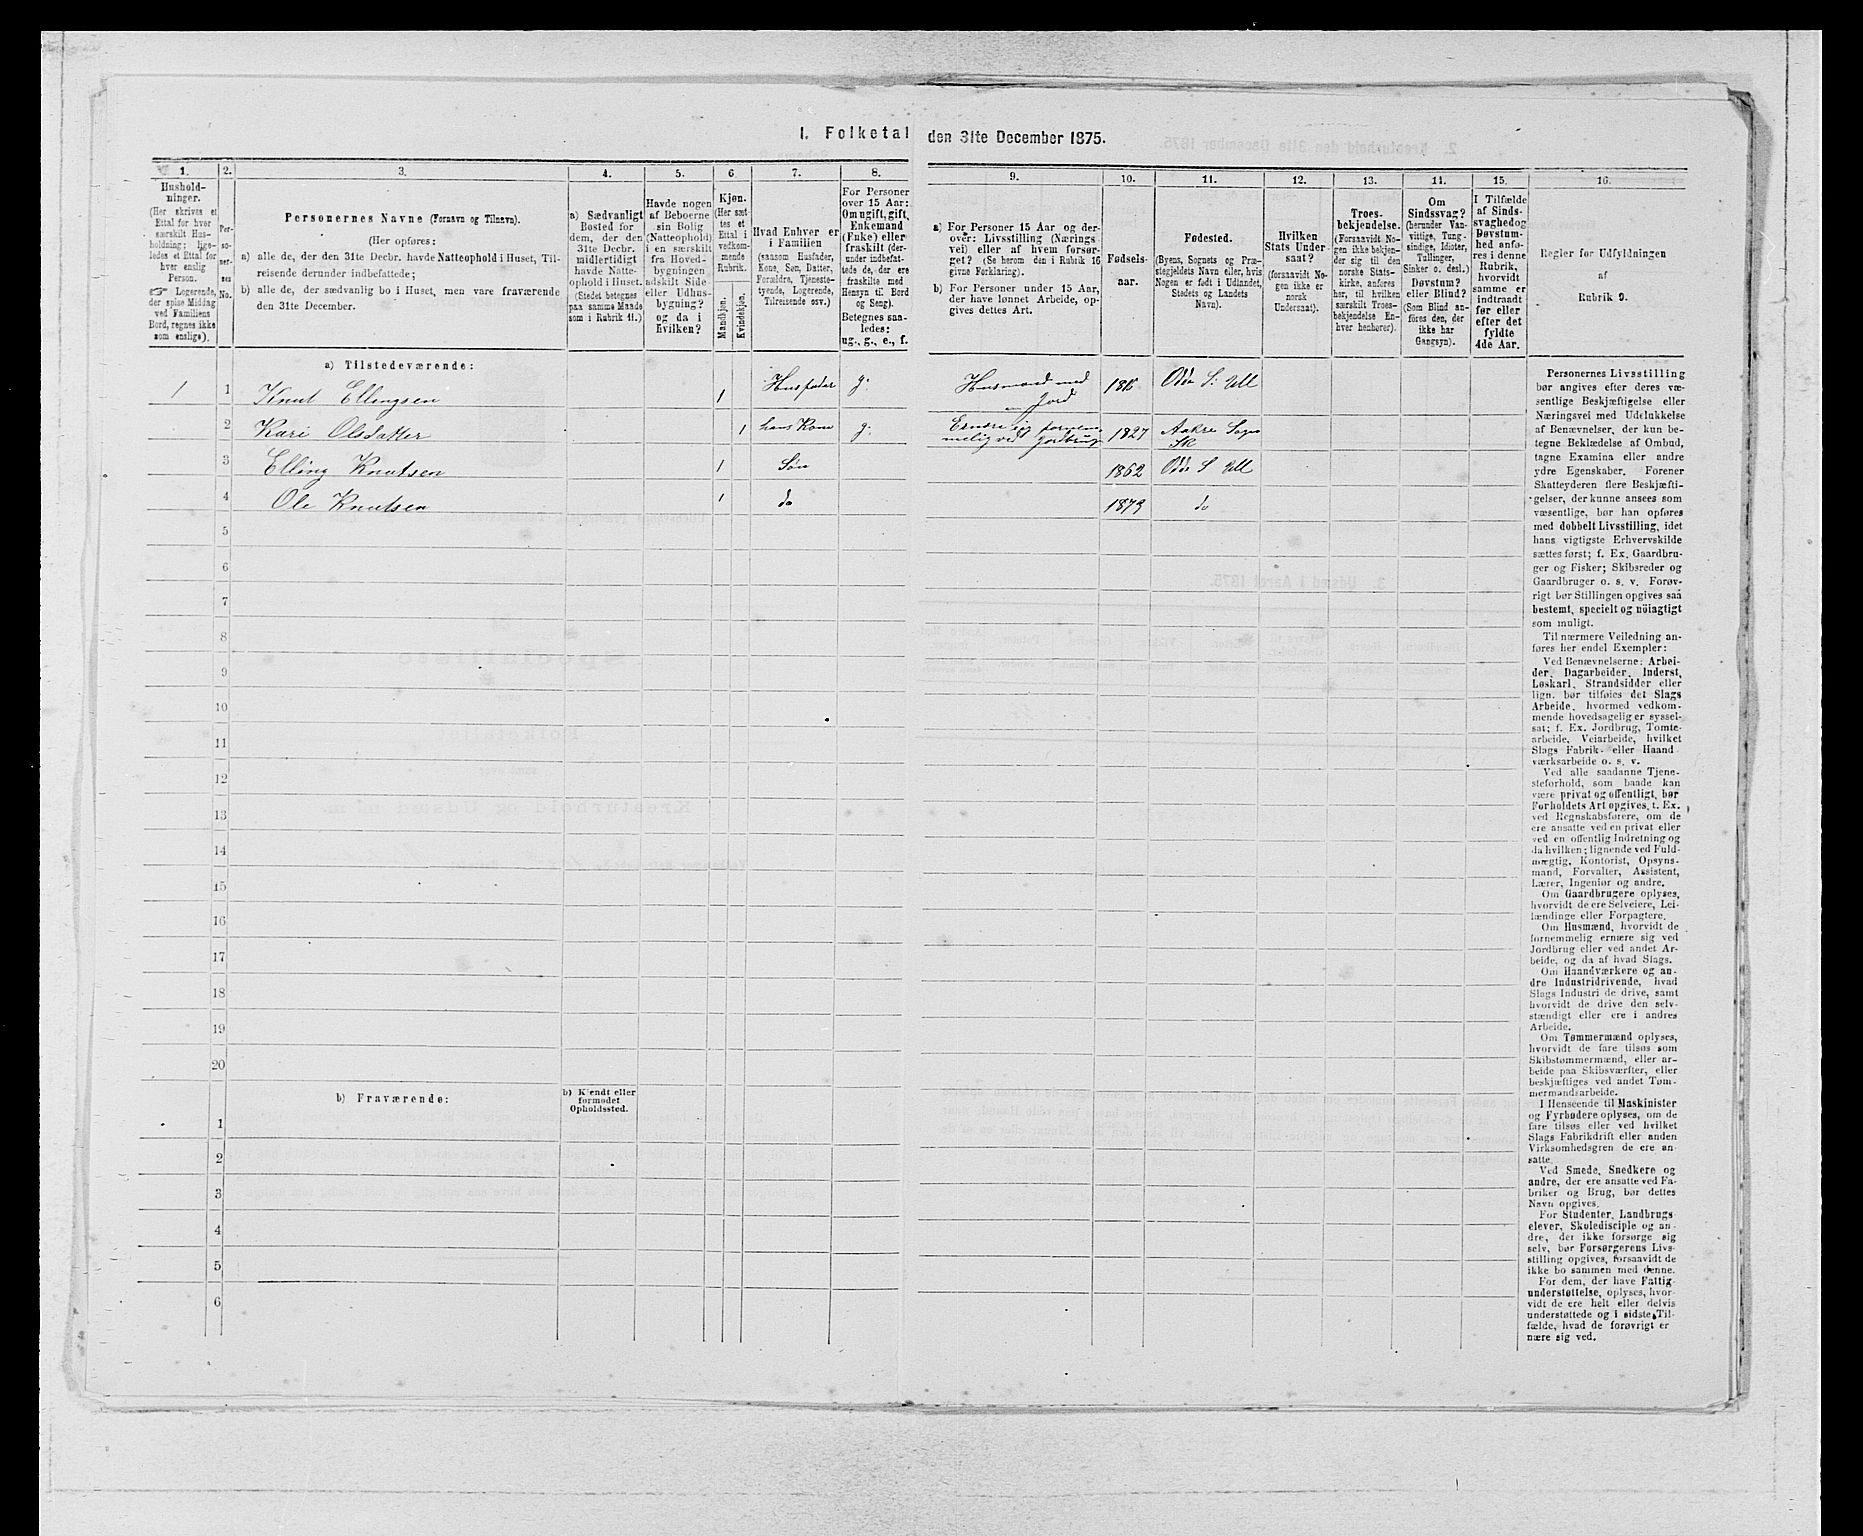 1. Folketal den 31te December 1875.
1. 2. 3. 4. 5. 6 7. 8. 9. 10. 11. 12. 13. 14. 15. 16.
Hushold-
ninger.
(Her skrives et
Ettal for hver
særskilt Hus-
holdning; lige-
ledes et Ettal for
hver enslig
Person.
☞ Logerende,
der spise Middag
ved Familiens
Bord, regnes ikke
som enslige).
Per-
so-
ner-
nes
No.
Personernes Navne (Fornavn og Tilnavn).
(Her opføres:
a) alle de, der den 31te Decbr. havde Natteophold i Huset, Til-
reisende derunder indbefattede;
b) alle de, der sædvanlig bo i Huset, men vare fraværende
den 31te December.
a) Sædvanligt
Bosted for
dem, der den
31te Decbr.
midlertidigt
havde Natte-
ophold i Huset.
(Stedet betegnes
paa samme Maade
som i Rubrik 11.)
Havde nogen
af Beboerne
sin Bolig
(Natteophold)
i en særskilt
fra Hoved-
bygningen
adskilt Side-
eller Udhus-
bygning?
og da i
hvilken?
Kjøn.
(Her sæt-
tes et
Ettal i
vedkom-
mende
Rubrik.
Mandkjøn.
Kvindekjøn.
Hvad Enhver er
i Familien
(saasom Husfader,
Kone, Søn, Datter,
Forældre, Tjeneste-
tyende, Logerende,
Tilreisende osv.)
For Personer
over 15 Aar:
Om ugift, gift,
Enkemand
(Enke) eller
fraskilt (der-
under indbefat-
tede de, der ere
fraskilte med
Hensyn til Bord
og Seng).
Betegnes saa-
ledes:
ug., g., e., f.
a) For Personer 15 Aar og der-
over: Livsstilling (Nærings
vei) eller af hvem forsør-
get? (Se herom den i Rubrik 16
givne Forklaring).
b) For Personer under 15 Aar,
der have lønnet Arbeide, op-
gives dettes Art.
Fødsels-
aar.
Fødested.
(Byens, Sognets og Præ-
stegjeldets Navn eller, hvis
Nogen er født i Udlandet,
Stedets og Landets
Navn).
Hvilken
Stats Under
saat?
(forsaavidt No-
gen ikke er
norsk
Undersaat).
Troes-
bekjendelse.
(Forsaavidt No-
gen ikke bekjen-
der sig til den
norske Stats-
kirke, anføres
her, til hvilken
særskilt Troes-
bekjendelse En-
hver henhører).
Om
Sindssvag?
(herunder Van-
vittige, Tung-
sindige, Idioter,
Tullinger,
Sinker o. desl.)
Døvstum?
eller Blind?
(Som Blind an-
føres den, der
ikke har
Gangsyn).
I Tilfælde
af Sinds-
svaghed og
Døvstum-
hed anfø-
res i denne
Rubrik,
hvorvidt
samme er
indtraadt
før eller
efter det
fyldte
4de Aar.
Regler før Udfyldningen
af
Rubrik 9.
a) Tilstedeværende:
1 1 Knut Ellingsen 1 Husfader g. Husmand med Jord Odde S. Ull
2 Kari Olsdatter 1 hans Kone g. Ernære sig fornem-
melig ved Jordbrug 1827 Aakre Sogn
Sk
3 Elling Knutsen 1 Søn 1862 Odde S Ull
4 Ole Knutsen 1 do 1873 do
5
6
7
8
9
10
11
12
13
14
15
16
17
18
19
20
b) Fraværende:
b) Kjendt eller
formodet
Opholdssted.
1
2
3
4
5
6
Personernes Livsstilling
bør angives efter deres væ-
sentlige Beskjæftigelse eller
Næringsvei med Udelukkelse
af Benævnelser, der kun be-
tegne Beklædelse af Ombud,
tagne Examina eller andre
ydre Egenskaber. Forener
Skatteyderen flere Beskjæfti-
gelser, der kunne ansees som
væsentlige, bør han opføres
med dobbelt Livsstilling, idet
hans vigtigste Erhvervskilde
sættes først; f. Ex. Gaardbru-
ger og Fisker; Skibsreder og
Gaardbruger o. s. v. Forøv-
rigt bør Stillingen opgives saa
bestemt, specielt og nöiagtigt
som muligt.
Til nærmere Veiledning an-
føres her endel Exempler:
Ved Benævnelserne: Arbei-
der, Dagarbeider, Inderst,
Løskarl, Strandsidder eller
lign. bør tilføies det Slags
Arbeide, hvormed vedkom-
mende hovedsagelig er syssel-
sat; f. Ex. Jordbrug, Tomte-
arbeide, Veiarbeide, hvilket
Slags Fabrik- eller Haand
værksarbeide o. s. v.
Ved alle saadanne Tjene-
steforhold, som baade kan
være privat og offentligt, bør
Forholdets Art opgives, t. Ex.
ved Regnskabsførere, om de
ere ansatte ved en privat eller
ved en offentlig Indretning og
da hvilken; lignende ved Fuld-
mægtig, Kontorist, Opsyns-
mand, Forvalter, Assistent,
Lærer, Ingeniør og andre.
Om Gaardbrugere oplyses,
hvorvidt de ere Selveiere, Lei-
lændinge eller Forpagtere.
Om Husmænd, hvorvidt de
fornemmelig ernære sig ved
Jordbrug eller ved andet Ar-
beide, og da af hvad Slags.
Om Haandværkere og an-
dre Industridrivende, hvad
Slags Industri de drive, samt
hvorvidt de drive den selv-
stændigt eller ere i andres
Arbeide.
Om Tømmermænd oplyses,
hvorvidt de fare tilsøs som
Skibstømmermænd, eller ar-
beide paa Skibsværfter, eller
beskjæftiges ved andet Tøm-
mermandsarbeide.
I Henseende til Maskinister
og Fyrbødere oplyses, om de
fare tilsøs eller ved hvilket
Slags Fabrikdrift eller anden
Virksomhedsgren de ere an-
satte.
Ved Smede, Snedkere og
andre, der ere ansatte ved Fa-
briker og Brug, bør dettes
Navn opgives.
For Studenter, Landbrugs
elever, Skoledisciple og an-
dre, der ikke forsørge sig
selv, bør Forsørgerens Livs-
stilling opgives, forsaavidt de
ikke bo sammen med denne.
For dem, der have Fattig-
understøttelse, oplyses, hvor-
vidt de ere helt eller delvis
understøttede og i sidste Til-
fælde, hvad de forøvrigt er
nære sig ved.